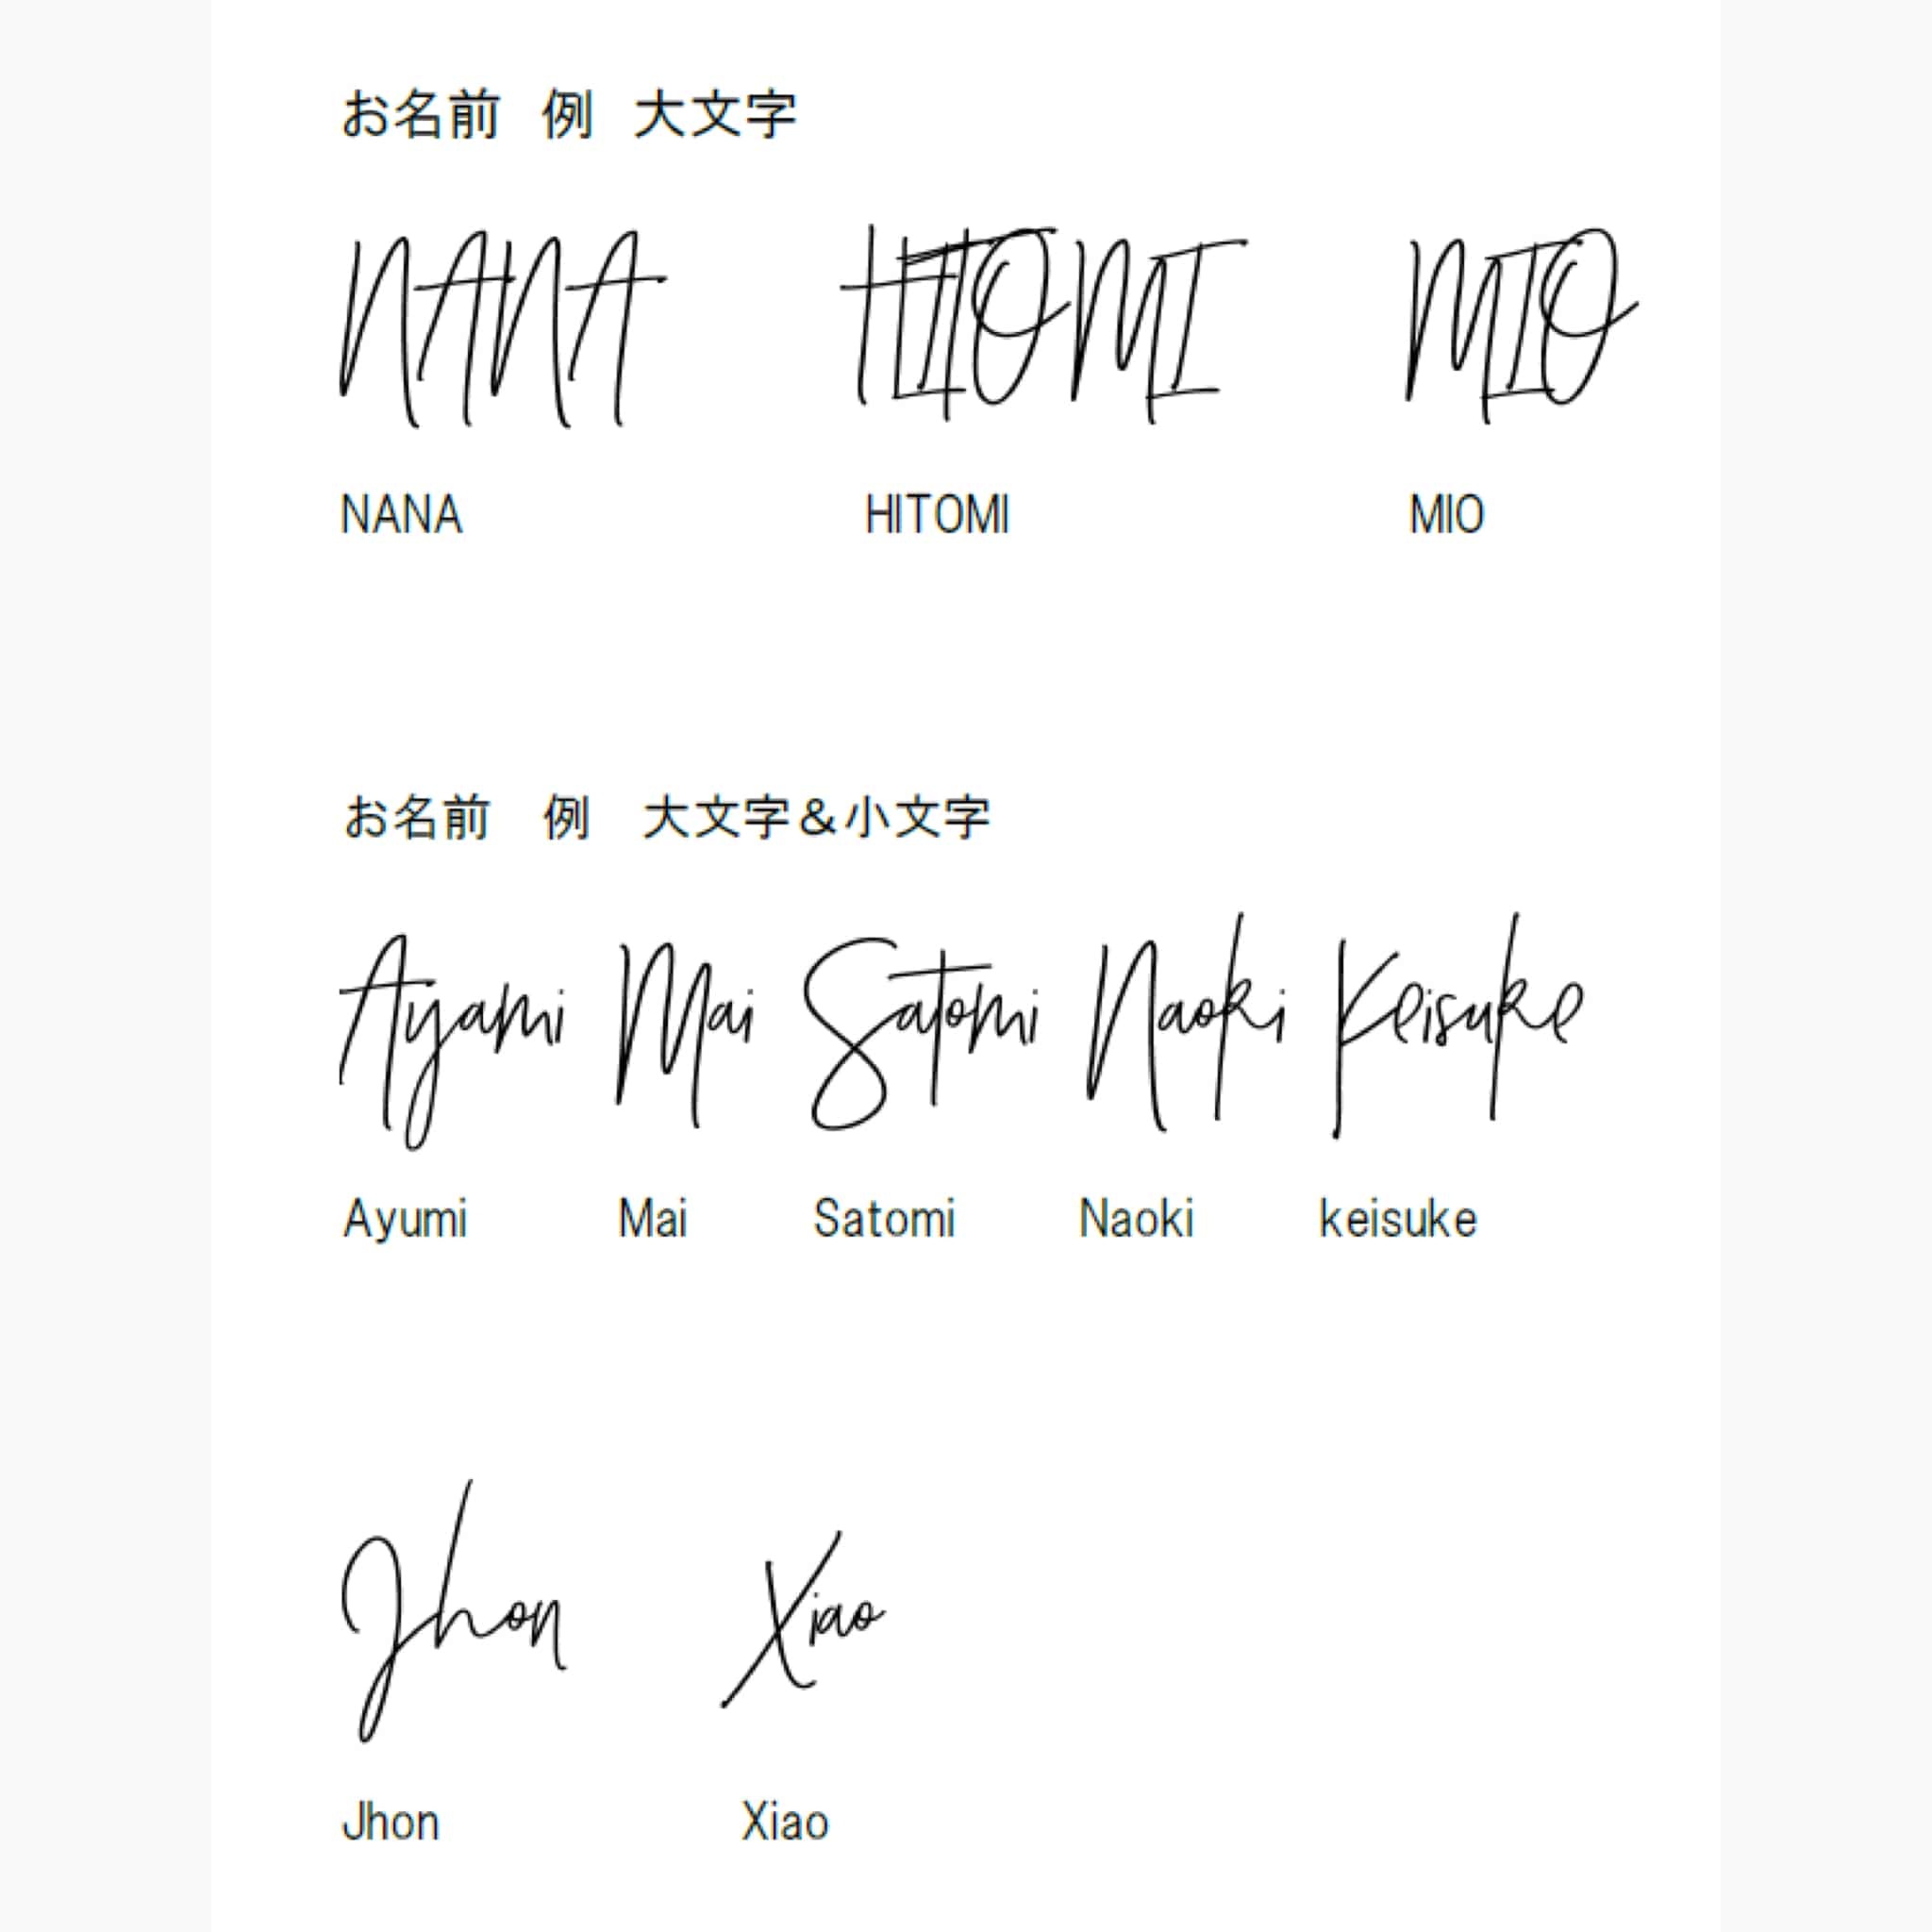 お名前 例 大文字
NANA HITOMI MIO
NANA HITOMI MIO
お名前 例 大文字&小文字
Ayami Mai Satomi Naoki Keisuke
Ayumi Mai Satomi Naoki keisuke
Jhon Xiao
Jhon Xiao